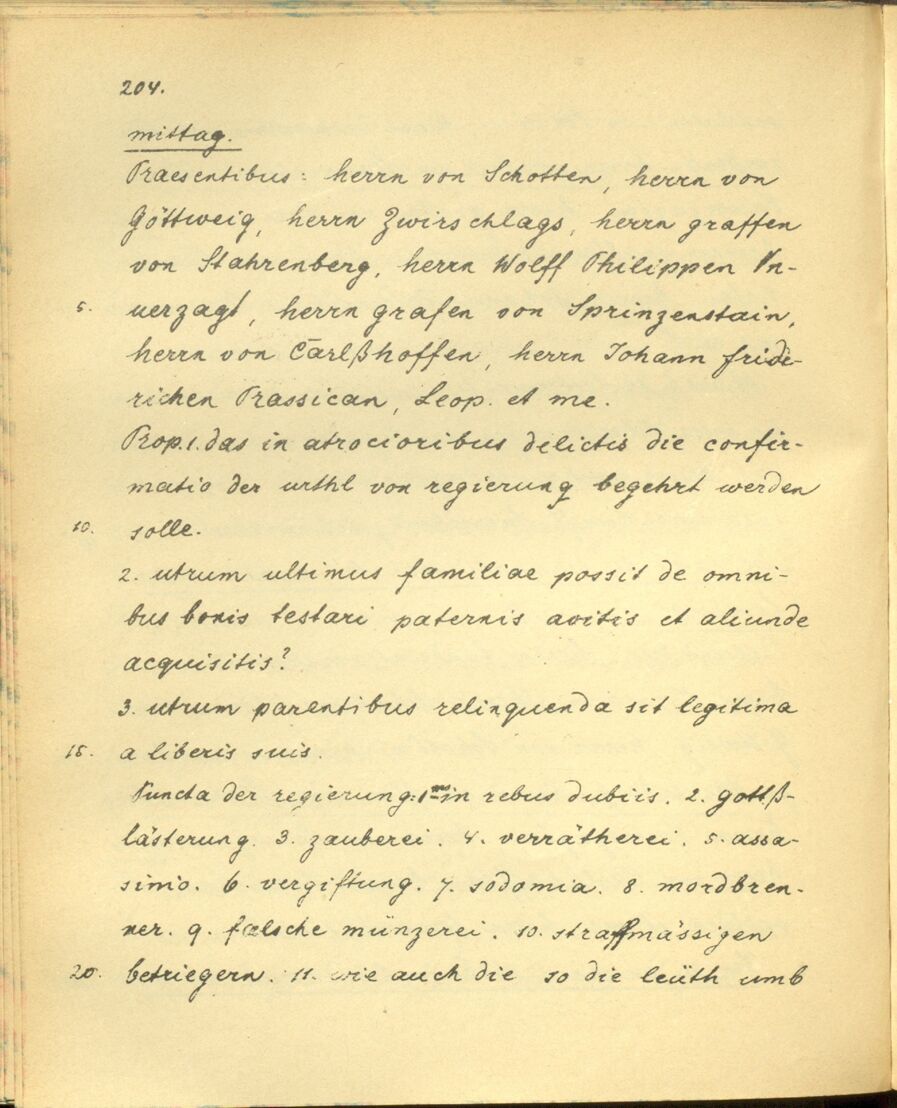 204.
mittag.
Praesentibus: herrn von Schotten, herrn von
Göttweig, herrn Zwirschlags, herrn graffen
von Stahrenberg, herrn Wolff Philippen Vn-
5. uerzagt, herrn grafen von Sprinzenstain,
herrn von Carlßhoffen, herrn Johann fride-
richen Prassican, Leop. et me.
Prop. 1. das in atrocioribus delictis die confir-
matio der urthl von regierung begehrt werden
10. solle.
2. utrum ultimus familiae possit de omni-
bus bonis testari paternis avitis et aliunde
acquisitis?
3. utrum parentibus relinquenda sit legitima
15. a liberis suis.
Puncta der regierung: 1mo in rebus dubiis. 2. gottß-
lästerung. 3. zauberei. 4. verrätherei. 5. assa-
sinio. 6. vergiftung. 7. sodomia. 8. mordbren-
ner. 9. falsche münzerei. 10. straffmässigen
20. betriegern. 11. wie auch die so die leüth umb